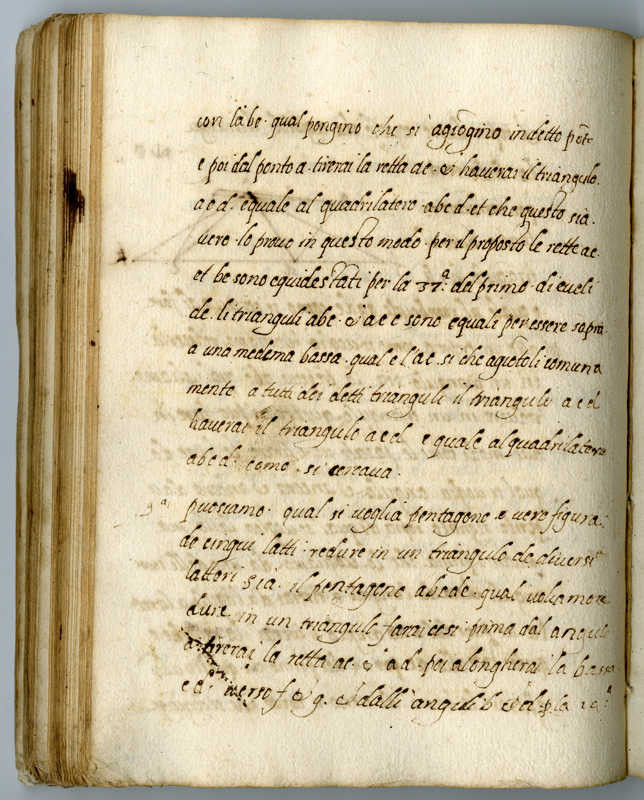 con la be. qual pongino che si agiōgino in detto pōt.
e poi dal ponto a. tirerai la retta ae. & haverai il triangulo.
aed. equale al quadrilatero abcd. et che questo sia.
vero. lo provo in questo modo. per il proposto le rette ac.
et be sono equidestati per la 37ª. del primo. di eucli
de. li trianguli abc. & aec sono equali per essere sopra
a una medema bassa. qual e l'ac. si che agiōtoli comuna
mente a tutti doi detti trianguli il triangulo acd
haverai il triangulo aed e quale al quadrilatero
abcd. como. si cercava.
3ª puosiamo. qual si voglia pentagono e vero figura.
de cinqui latti. redure in un triangulo de diversi
lattori sia. il pentagono abcde. qual voliamo re
dure. in un triangulo farai cosi prima dal angulo
a. tirerai la retta ac. & ad. poi alongherai la bassa
cd. verso f & g. & dalli anguli b & e per la